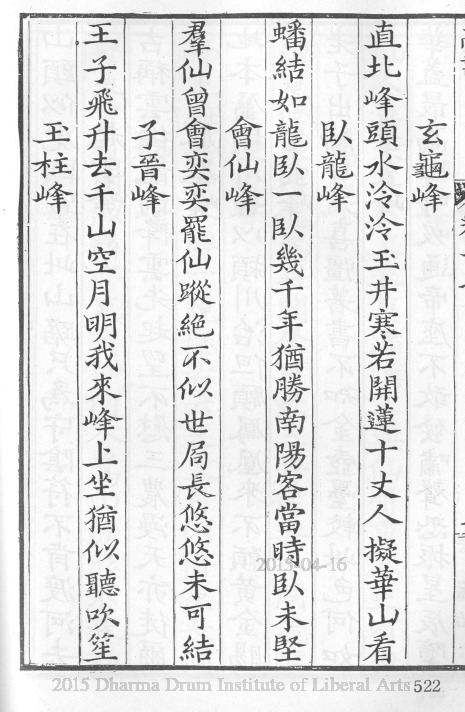 玄龜峰
直北峰頭水泠泠玉井寒若開蓮十丈人擬華山看
臥龍峰
蟠結如龍臥一臥幾千年猶勝南陽客當時臥未堅
會仙峰
羣仙曾會奕奕罷仙蹤絕不似世局長悠悠未可結
子晉峰
王子飛升去千山空月明我來峰上坐猶似聽吹笙
玉柱峰
2015-04-16
2015 Dharma Drum Institute of Liberal Arts 522